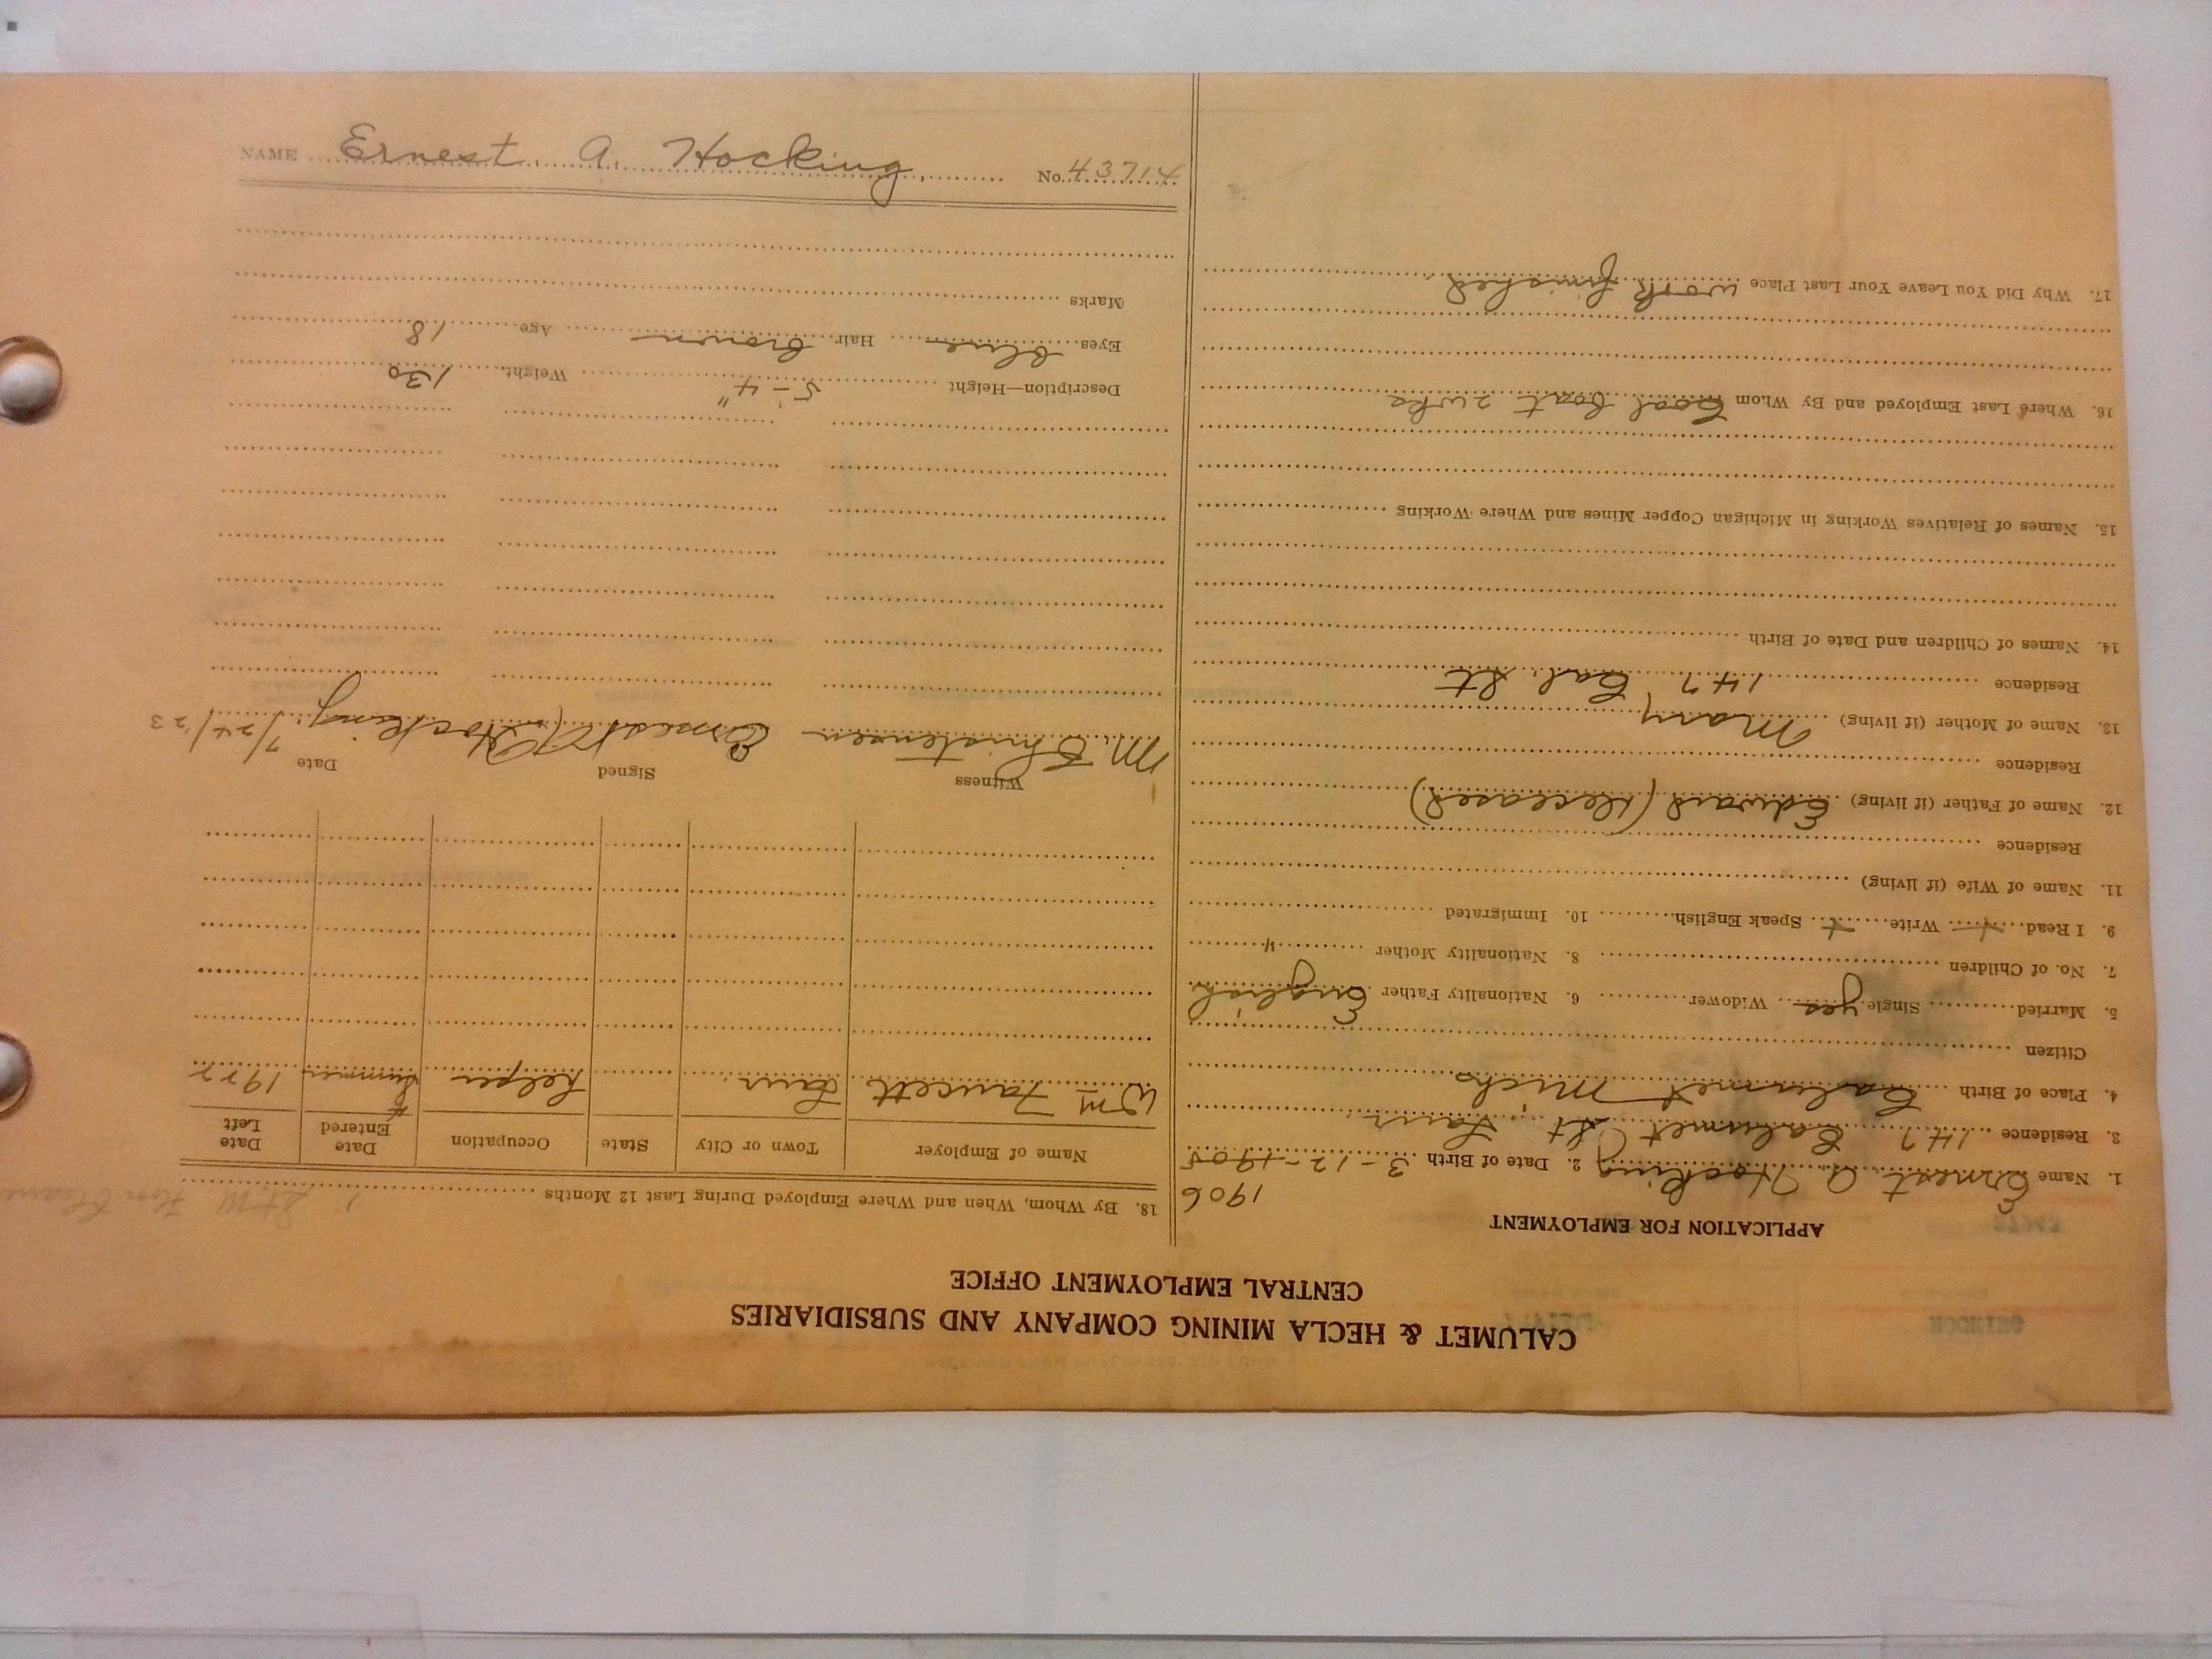 CALUMET & HECLA MINING COMPANY AND SUBSIDIARIES
CENTRAL EMPLOYMENT OFFICE
APPLICATION FOR EMPLOYMENT
1906
1. Name Ernest A. Hocking 2. Date of Birth 3-12-1905
3. Residence 147 Calumet St Laur.
4. Place of Birth Calumet Mich
Citizen
5. Married Single yes Widower 6. Nationality Father English
7. No. of Children 8. Nationality Mother "
9. I Read + Write + Speak English 10. Immigrated
11. Name of Wife (if living)
Residence
12. Name of Father (if living) Edward (deceased)
Residence
13. Name of Mother (if living) Mary
Residence 147 Cal. St
14. Names of Children and Date of Birth
15. Names of Relatives Working in Michigan Copper Mines and Where Working
16. Where Last Employed and By Whom Coal boat 2 wks
17. Why Did You Leave Your Last Place work finished
18. By Whom, When and Where Employed During Last 12 Months
Name of Employer Town or City State Occupation Date Entered Date Left
Wm Faucett Laur. helper Summer 1922
Witness Signed Date
M. Christensen Ernest A Hocking 7/24/23
Description—Height 5-4" Weight 130
Eyes blue Hair brown Age 18
Marks
NAME Ernest A. Hocking No. 43714